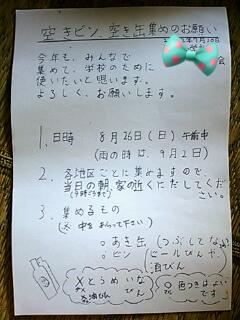 空きビン、空き缶集めのお願い
今年も、みんなで
集めて、学校のために
使いたいと思います。
よろしく、お願いします。
会
1. 日時 8月26日(日)午前中
(雨の時は、9月2日)
2. 各地区ごとに集めますので、
当日の朝、家の近くにだしてくだ
さい。
3. 集めるもの
(※ 中をあらって下さい)
○あき缶(つぶしてない)
○ビン(ビールびんや、
酒びん
×とうめいな
びん
○色つきはよい
です